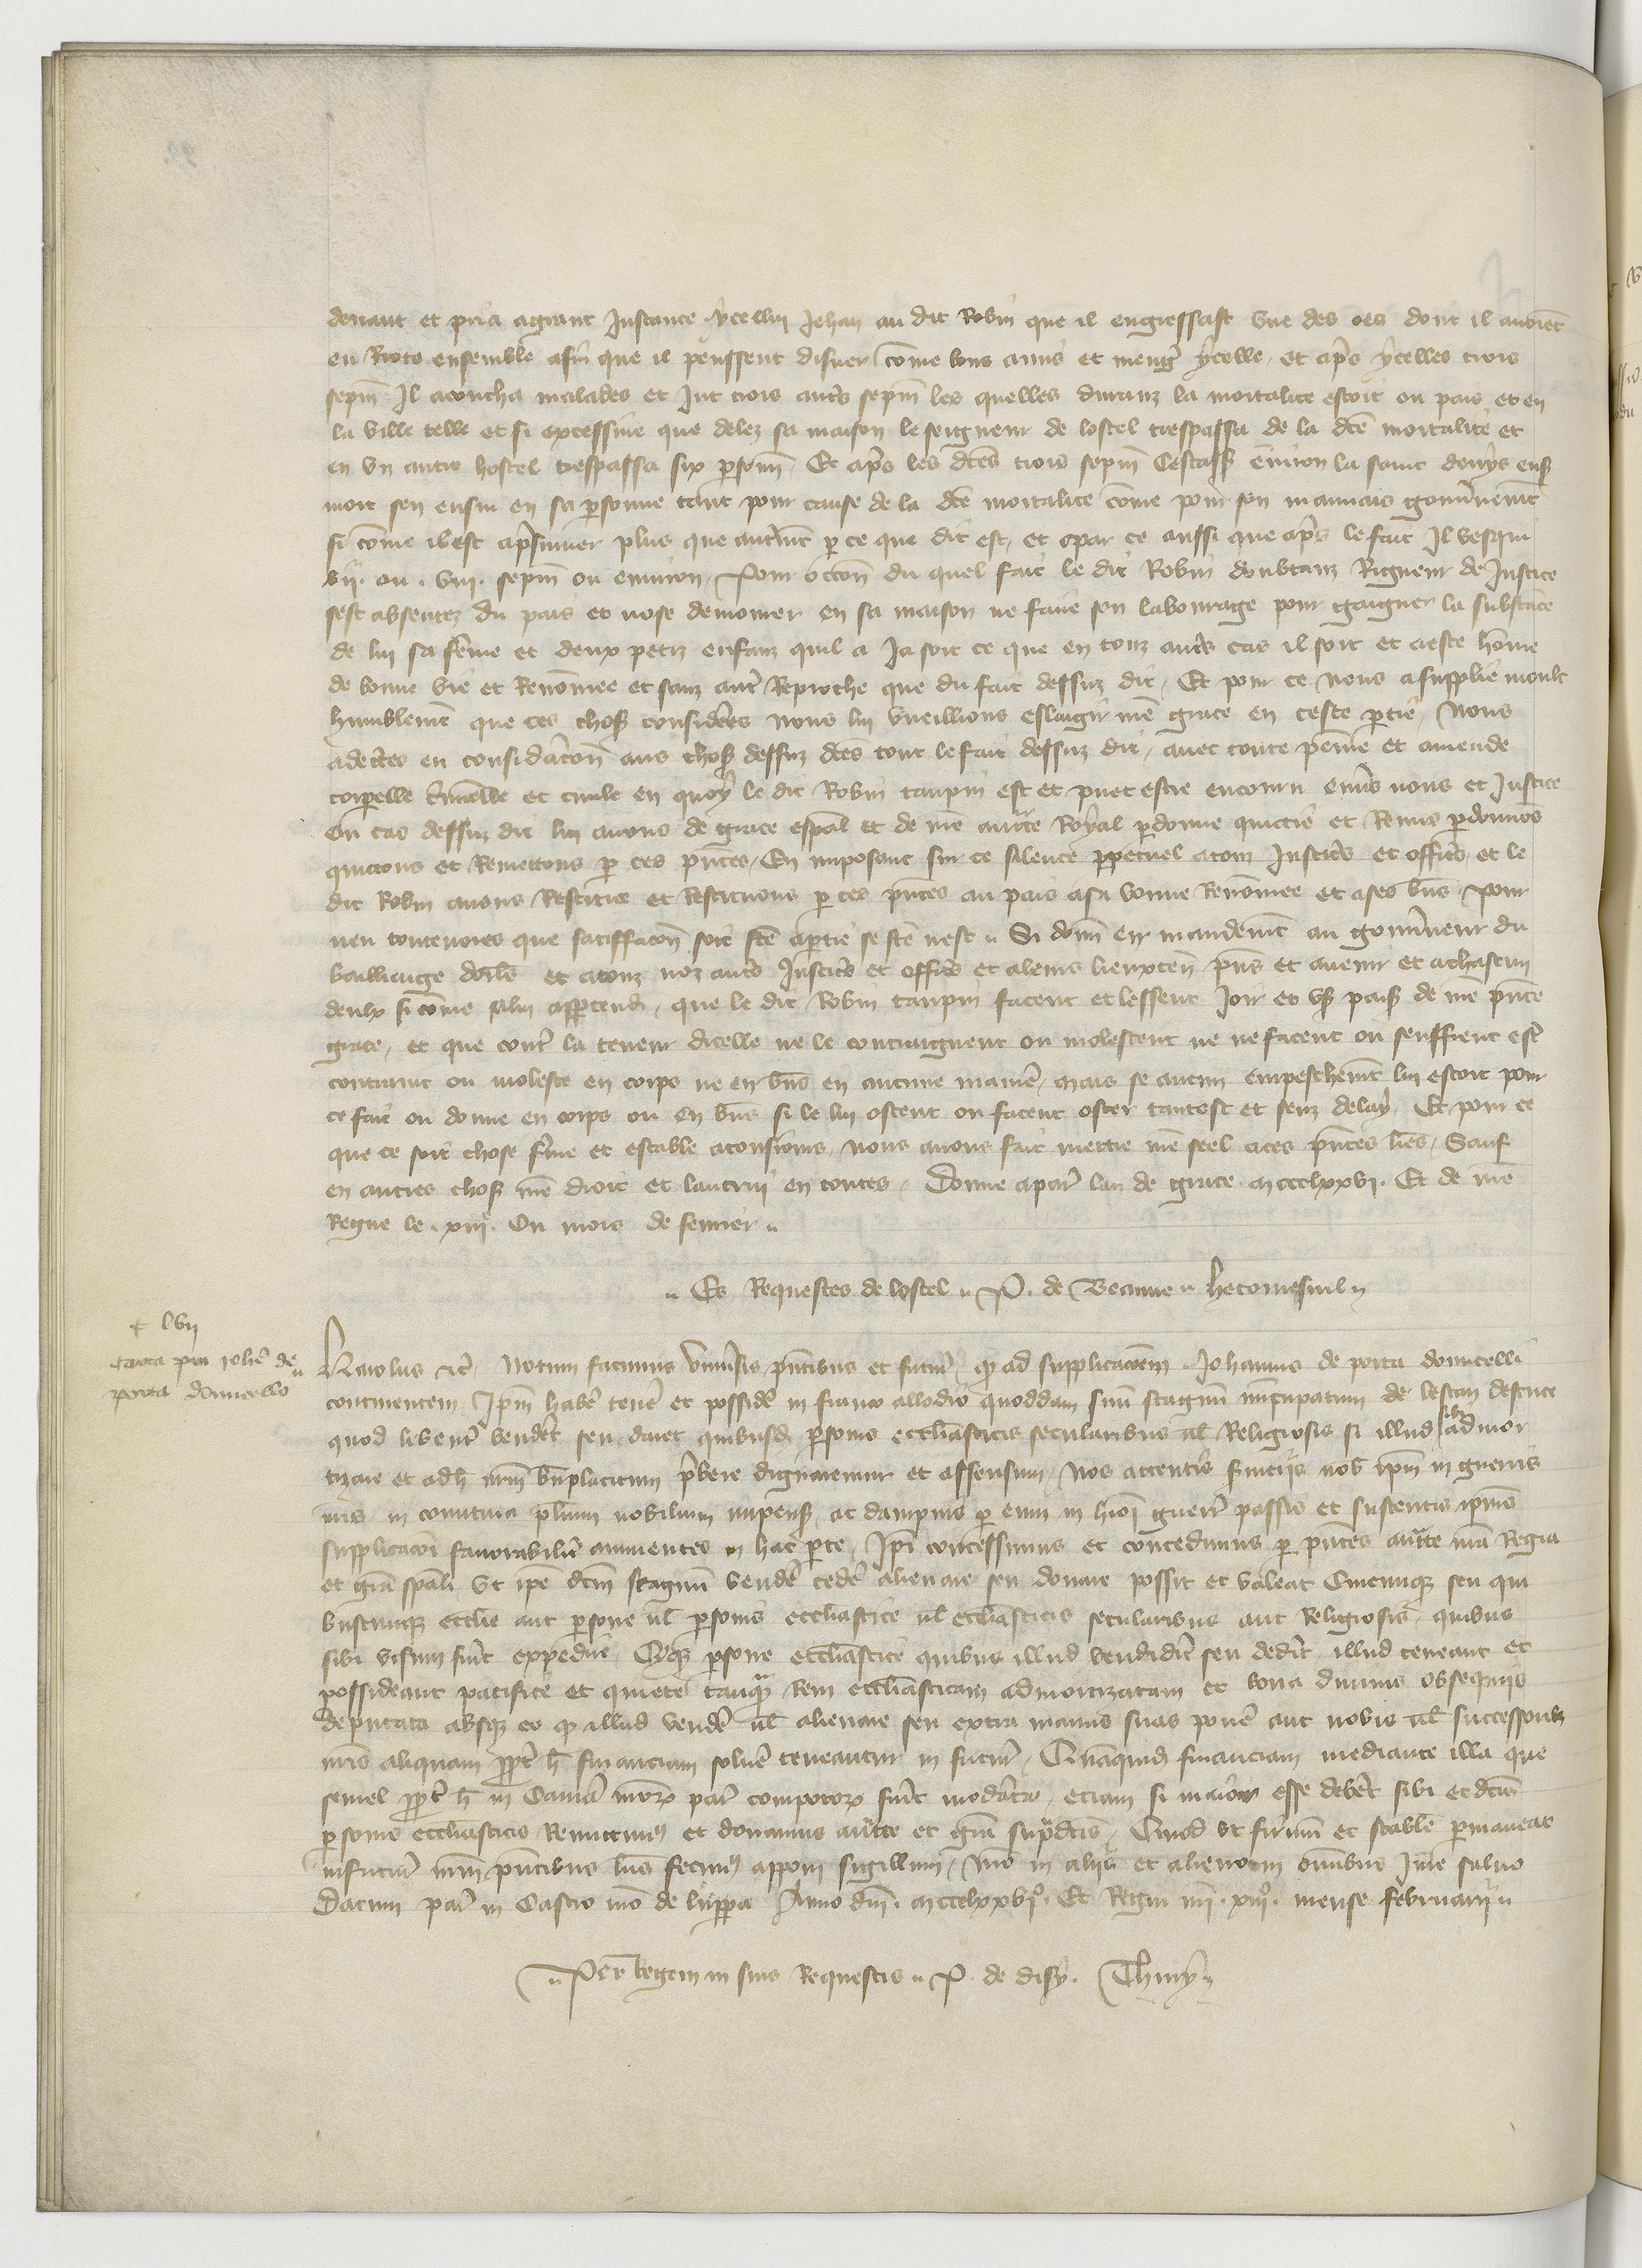 devant et pria a grant Instance ycellui Jehan au dit Robin que il engressast une des oes dont il avoiẽt
eu Riote ensemble afin que il peussent disner cõme bons amis et mengr̃ ycelle, et apr̃s ycelles trois
sepm̃ Il acoucha malades et Jut trois autr̃s sepm̃ les quelles duranz la mortalite estoit ou pais et en
la ville telle et si excessive que delez sa maison le seigneur de lostel trespassa de la dc̃e mortalite et
en un autre hostel trespassa six p̃sonn̄. Et apr̃s les dc̃es trois sepm̃ Cestass̃ environ la saint denys
mort sen ensui en sa p̃sonne tant pour cause de la dc̃e mortalite cõme pour son mauvais gouv̾nemẽt
si cõme il est a p̃sumer plus que autremẽt p ce que dit est, et par ce aussi que apr̃s le fait Il vesqui
vii. ou . viii. sepm̃ ou environ, Pour occõn du quel fait le dit Robin doubtanz Rigueur de Justice
sest absentez du pais et nose demourer en sa maison ne faire son labourage pour gaigner la substãce
de lui sa fẽme et deux petiz enfanz quil a Ja soit ce que en touz autr̃s cas il soit et a este hõme
de bonne vie et Renõmee et sanz autr̃ Reproche que du fait dessuz dit, Et pour ce nous a supplie moult
humblemẽt que ces chos̃ considerees nous lui vueillions eslargir nr̃e grace en ceste p̃tie, Nous
adcertes en consideracõn aus chos̃ dessuz dc̃es tout le fait dessuz dit, avec toute peine et amende
corpelle criminelle et civile en quoy le dit Robin taupin est et puet estre encouru env̾s nous et Justice
Ou cas dessuz dit lui avons de grace esp̃al et de nr̃e auc̃te Royal p̃donne quictie et Remis p̃donnõs
quictons et Remettons p ces p̃ntes, En imposant sur ce silence p̃petuel a touz Justic̃rs et offic̃rs et le
dit Robin avons Restitue et Restituons p ces p̃ntes au pais a sa bonne Renõmee et a ses biẽs, Pour
veu toutevoies que satiffacõn soit fc̃e a p̃tie se fc̃e nest, Si donñ en mandemẽt au gouv̾neur du
bailliage dorl̃s et a touz noz autr̃s Justic̃rs et offic̃rs et a leurs lieuxten̄ p̃ns et avenir et a chascun
deulx si cõme a lui app̃tend̃, que le dit Robin taupin facent et lessent Joir et us̃ pais̃ de nr̃e p̃nte
grace, et que contr̃ la teneur dicelle ne le contraignent ou molestent ne ne facent ou seuffrent estr̃
contraint ou moleste en corps ne en biẽs en aucune manie͂, mais se aucun empeschemẽt lui estoit pour
ce fait ou donne en corps ou en biẽs si le lui ostent ou facent oster tantost et senz delay, Et pour ce
que ce soit chose ferme et estable a tousiours, nous avons fait mettre nr̃e seel a ces p̃ntes lr̃es, Sauf
en autres chos̃ nr̃e droit et lautrui en toutes, Donne a par̃ lan de grace mccclxxvi. Et de nr̃e
Regne le . xiii. Ou mois de fevrier
Es Requestes de lostel P. de Beaune Hetomesnil
lvii
Carta pro johe͂ de
porta domicello
Karolus etc̃, Notum facimus univ̾sis p̃ntibus et futur̃, qđ ad supplicacõem Johannis de porta domicelli
continentem, Ip̃m habe͂ tene͂ et posside͂ in franco allodio quoddam suũ stagnũ nũcupatum de lestan destruc
quod libent̃ vendert̃ seu daret quibusd̃ p̃sonis eccl̃iasticis secularibus ul̃ Religiosis si illud sibi admor
tizare et ad h̃ nr̃m bñplacitum p̃bere dignaremur et assensum, Nos attentis s̾viciis nob̃ ip̃m in guerris
nr̃is in comitiva pl̃ium nobilium impens̃, ac dampnis p eum in hmõi guerr̃ passis et sustentis ip̃ius
supplicacõi favorabilit̃ annuentes in hac p̃te, Ip̃i concessimus et concedimus p p̃ntes auc̃te nr̃a Regia
et gr̃a sp̃ali, ut ip̃e dc̃m stagnũ vende͂ cede͂ alienare seu donare possit et valeat Cuicumqz̃ seu qui
buscumqz̃ eccl̃ie aut p̃sone ul̃ p̃sonis eccl̃iastice ul̃ eccl̃iasticis secularibus aut Religiosis, quibus
sibi visum fũit expedire, Qq̃ p̃sone eccl̃iastice quibus illud vendidit̃ seu dedit̃ illud teneant et
possideant pacifice et quiete tanq̃m Rem eccl̃iasticam admortizatam et bona divinis obsequiis
deputata absqz̃ eo qđ illud vende͂ ul̃ alienare seu extra manus suas pone͂ aut nobis ul̃ successoribz̃
nr̃is aliquam ppt̃ h̃ financiam solve͂ teneantur in futur̃, Quãquid̃ financiam mediante illa que
semel ppt̃ h̃ in Cam̃a nr̃or̃ par̃ compotor̃ fũit modãta, eciam si maior esse debet̃ sibi et dc̃is
p̃sonis eccl̃iasticis Remittimus et donamus auc̃te et gr̃a sup̃dc̃is, Quod ut firmũ et stabile p̃maneat
in futur̃ nr̃m p̃ntibus lr̃is fecimus apponi sigillum, Nr̃o in aliis et alieno in õmibus Jure salvo
Datum par̃ in Castro nr̃o de luppara Anno dñi mccclxxviº. Et Regni nr̃i . xiiiº. mense februarii
Per Regem in suis Requestis P. de disy. Thiery